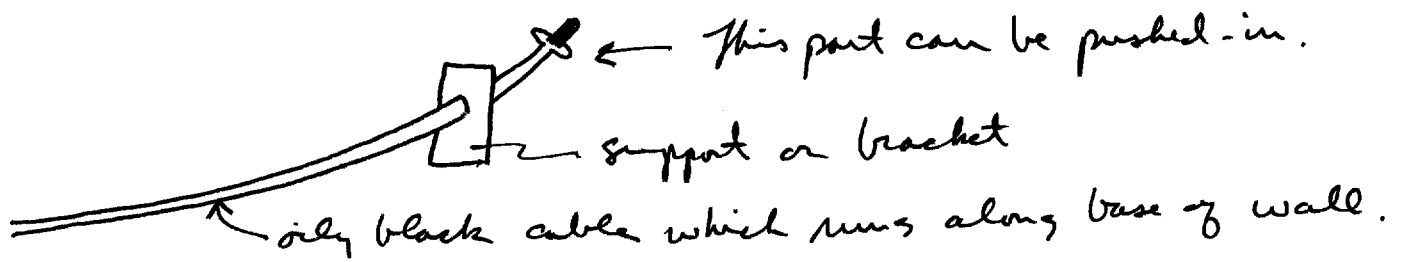 This part can be pushed-in.
support or bracket
oily black cable which runs along base of wall.